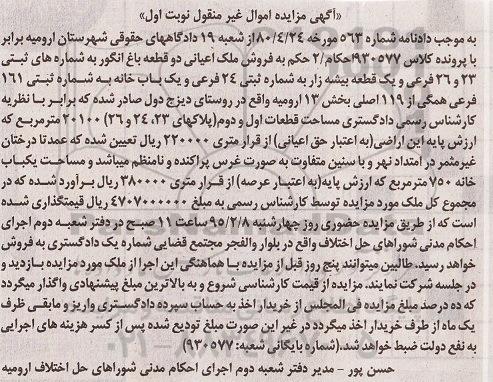 «آگهی مزایده اموال غیر منقول نوبت اول»
به موجب دادنامه شماره ۵۶۳ مورخه ۸۰/۴/۲۴ از شعبه ۱۹ دادگاههای حقوقی شهرستان ارومیه برابر
با پرونده کلاس ۹۳۰۵۷۷احکام/۲ حکم به فروش ملک اعیانی دو قطعه باغ انگور به شماره های ثبتی
۲۳ و ۲۶ فرعی و یک قطعه بیشه زار به شماره ثبتی ۲۴ فرعی و یک باب خانه به شماره ثبتی ۱۶۱
فرعی همگی از ۱۱۹ اصلی بخش ۱۳ ارومیه واقع در روستای دیزج دول صادر شده که برابر با نظریه
کارشناس رسمی دادگستری مساحت قطعات اول و دوم(پلاکهای ۲۳، ۲۴ و ۲۶) ۲۰۱۰۰ مترمربع که
ارزش پایه این اراضی(به اعتبار حق اعیانی) از قرار متری ۲۲۰۰۰۰ ریال تعیین شده که عمدتا درختان
غیرمثمر در امتداد نهر و با سنین متفاوت به صورت غرس پراکنده و نامنظم میباشد و مساحت یکباب
خانه ۷۵۰ مترمربع که ارزش پایه(به اعتبار عرصه) از قرار متری ۳۸۰۰۰۰ ریال برآورد شده که در
مجموع کل ملک مورد مزایده توسط کارشناس رسمی به مبلغ ۴۷۰۷۰۰۰۰۰۰ ریال قیمتگذاری شده
است که از طریق مزایده حضوری روز چهارشنبه ۹۵/۲/۸ ساعت ۱۱ صبح در دفتر شعبه دوم اجرای
احکام مدنی شوراهای حل اختلاف واقع در بلوار والفجر مجتمع قضایی شماره یک دادگستری به فروش
خواهد رسید. طالبین میتوانند پنج روز قبل از مزایده با هماهنگی این اجرا از ملک مورد مزایده بازدید و
در جلسه شرکت نمایند. مزایده از قیمت کارشناسی شروع و به بالاترین مبلغ پیشنهادی واگذار میگردد
که ده درصد مبلغ مزایده فی المجلس از خریدار اخذ به حساب سپرده دادگستری واریز و مابقی ظرف
یک ماه از طرف خریدار اخذ میگردد در غیر این صورت مبلغ تودیع شده پس از کسر هزینه های اجرایی
به نفع دولت ضبط خواهد شد.(شماره بایگانی شعبه: ۹۳۰۵۷۷)
حسن پور - مدیر دفتر شعبه دوم اجرای احکام مدنی شوراهای حل اختلاف ارومیه